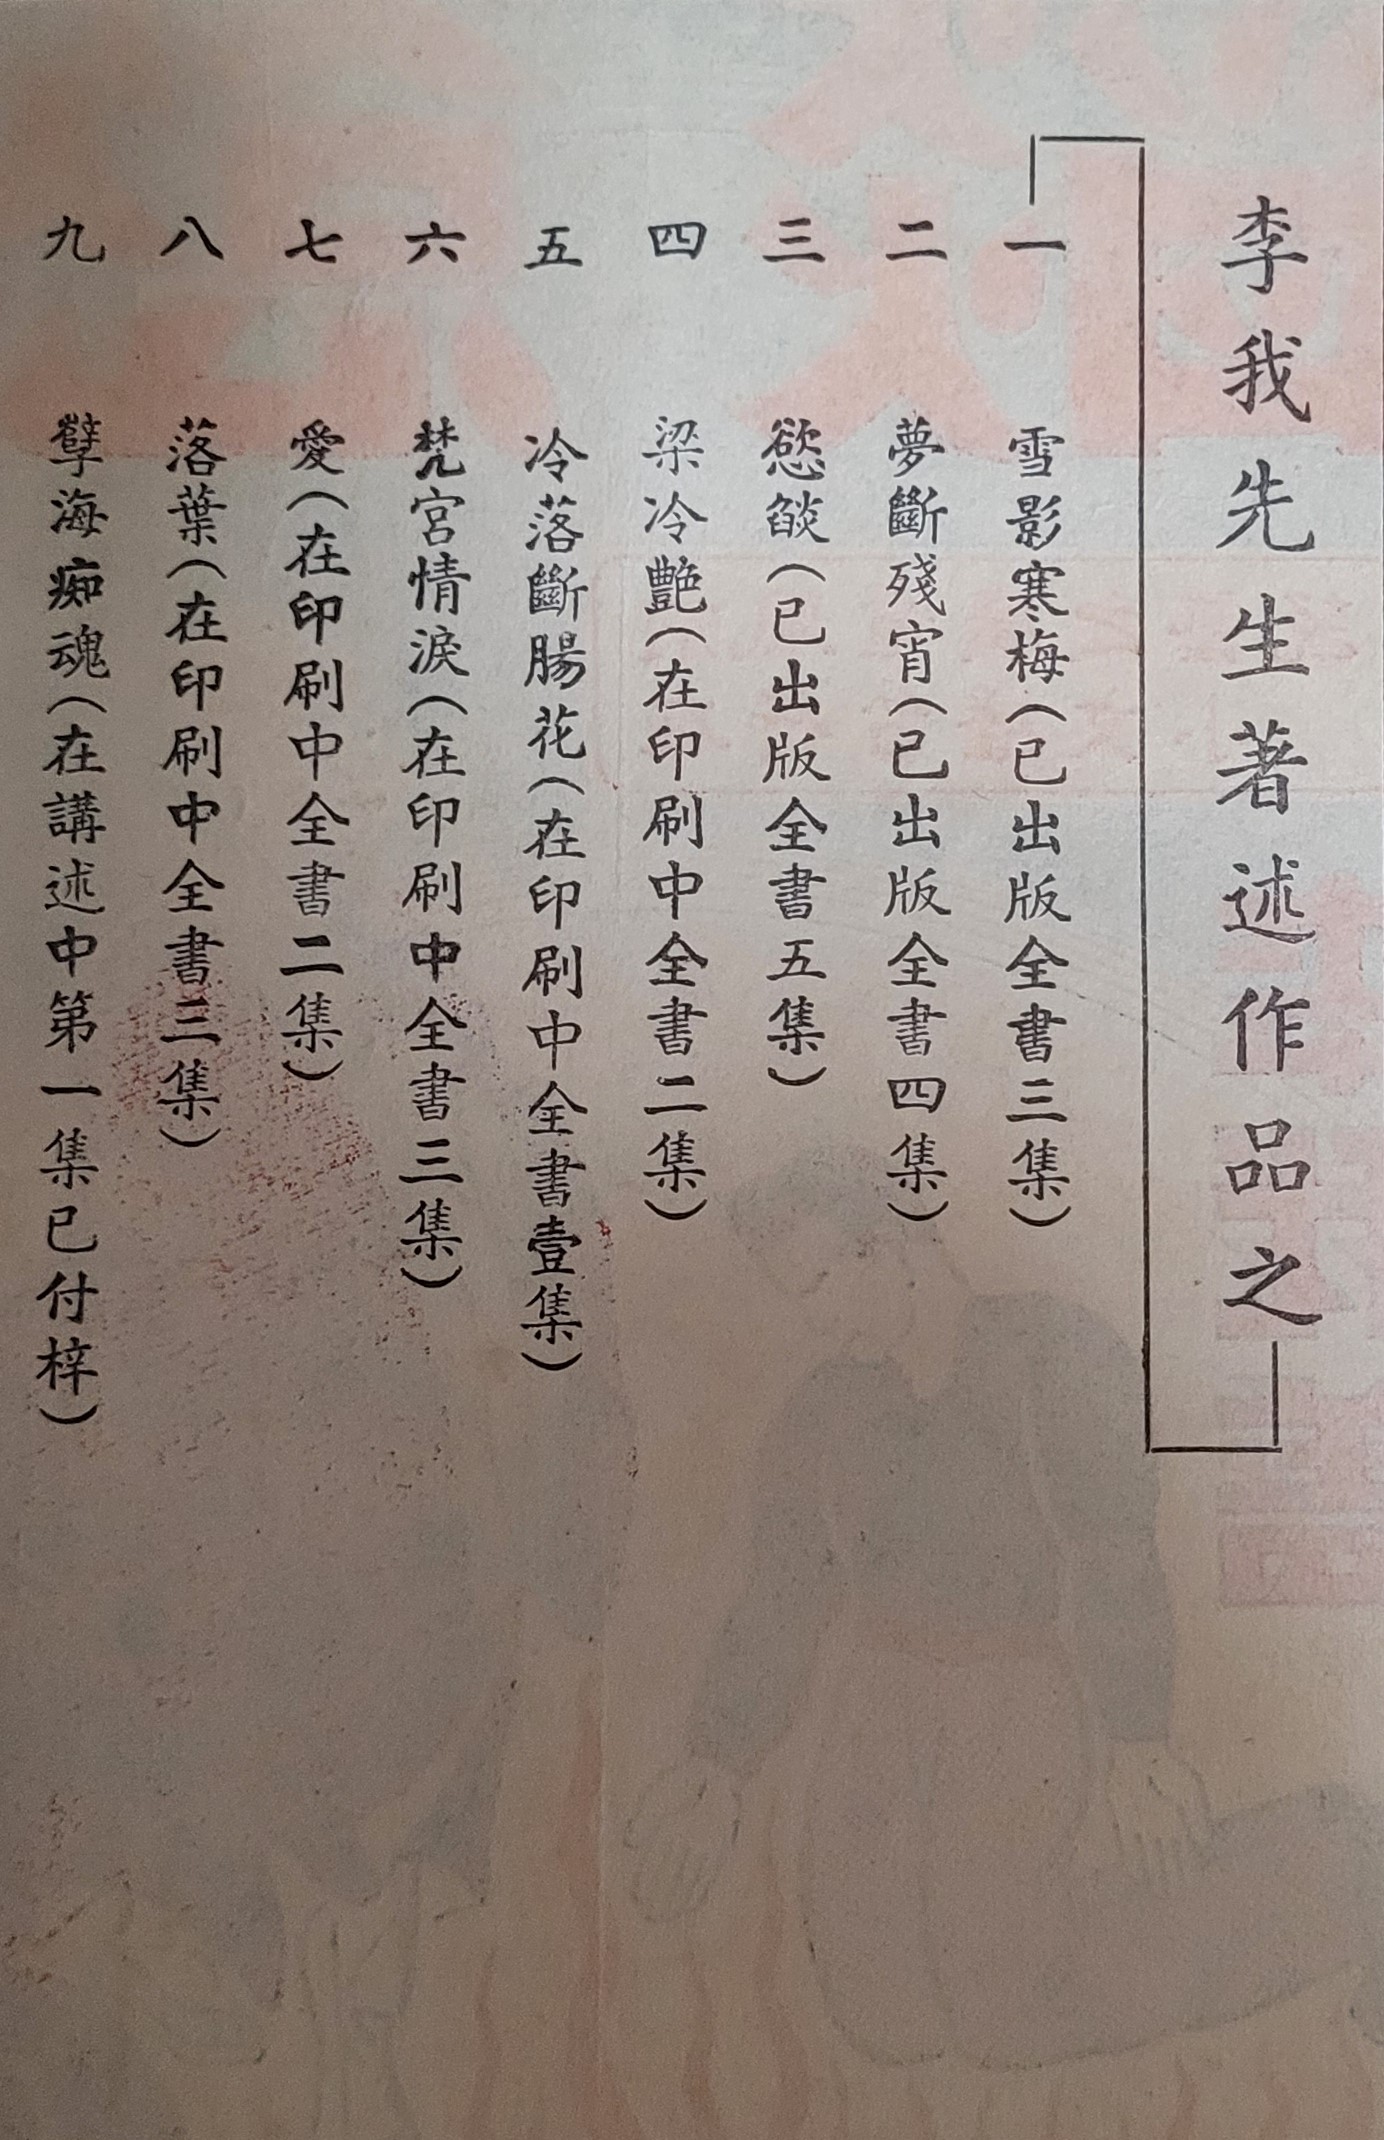 李我先生著述作品之
一 雪影寒梅(已出版全書三集)
二 夢斷殘宵(已出版全書四集)
三 慾燄(已出版全書五集)
四 梁冷艷(在印刷中全書二集)
五 冷落斷腸花(在印刷中全書壹集)
六 梵宮情淚(在印刷中全書三集)
七 愛(在印刷中全書二集)
八 落葉(在印刷中全書三集)
九 孽海痴魂(在講述中第一集已付梓)